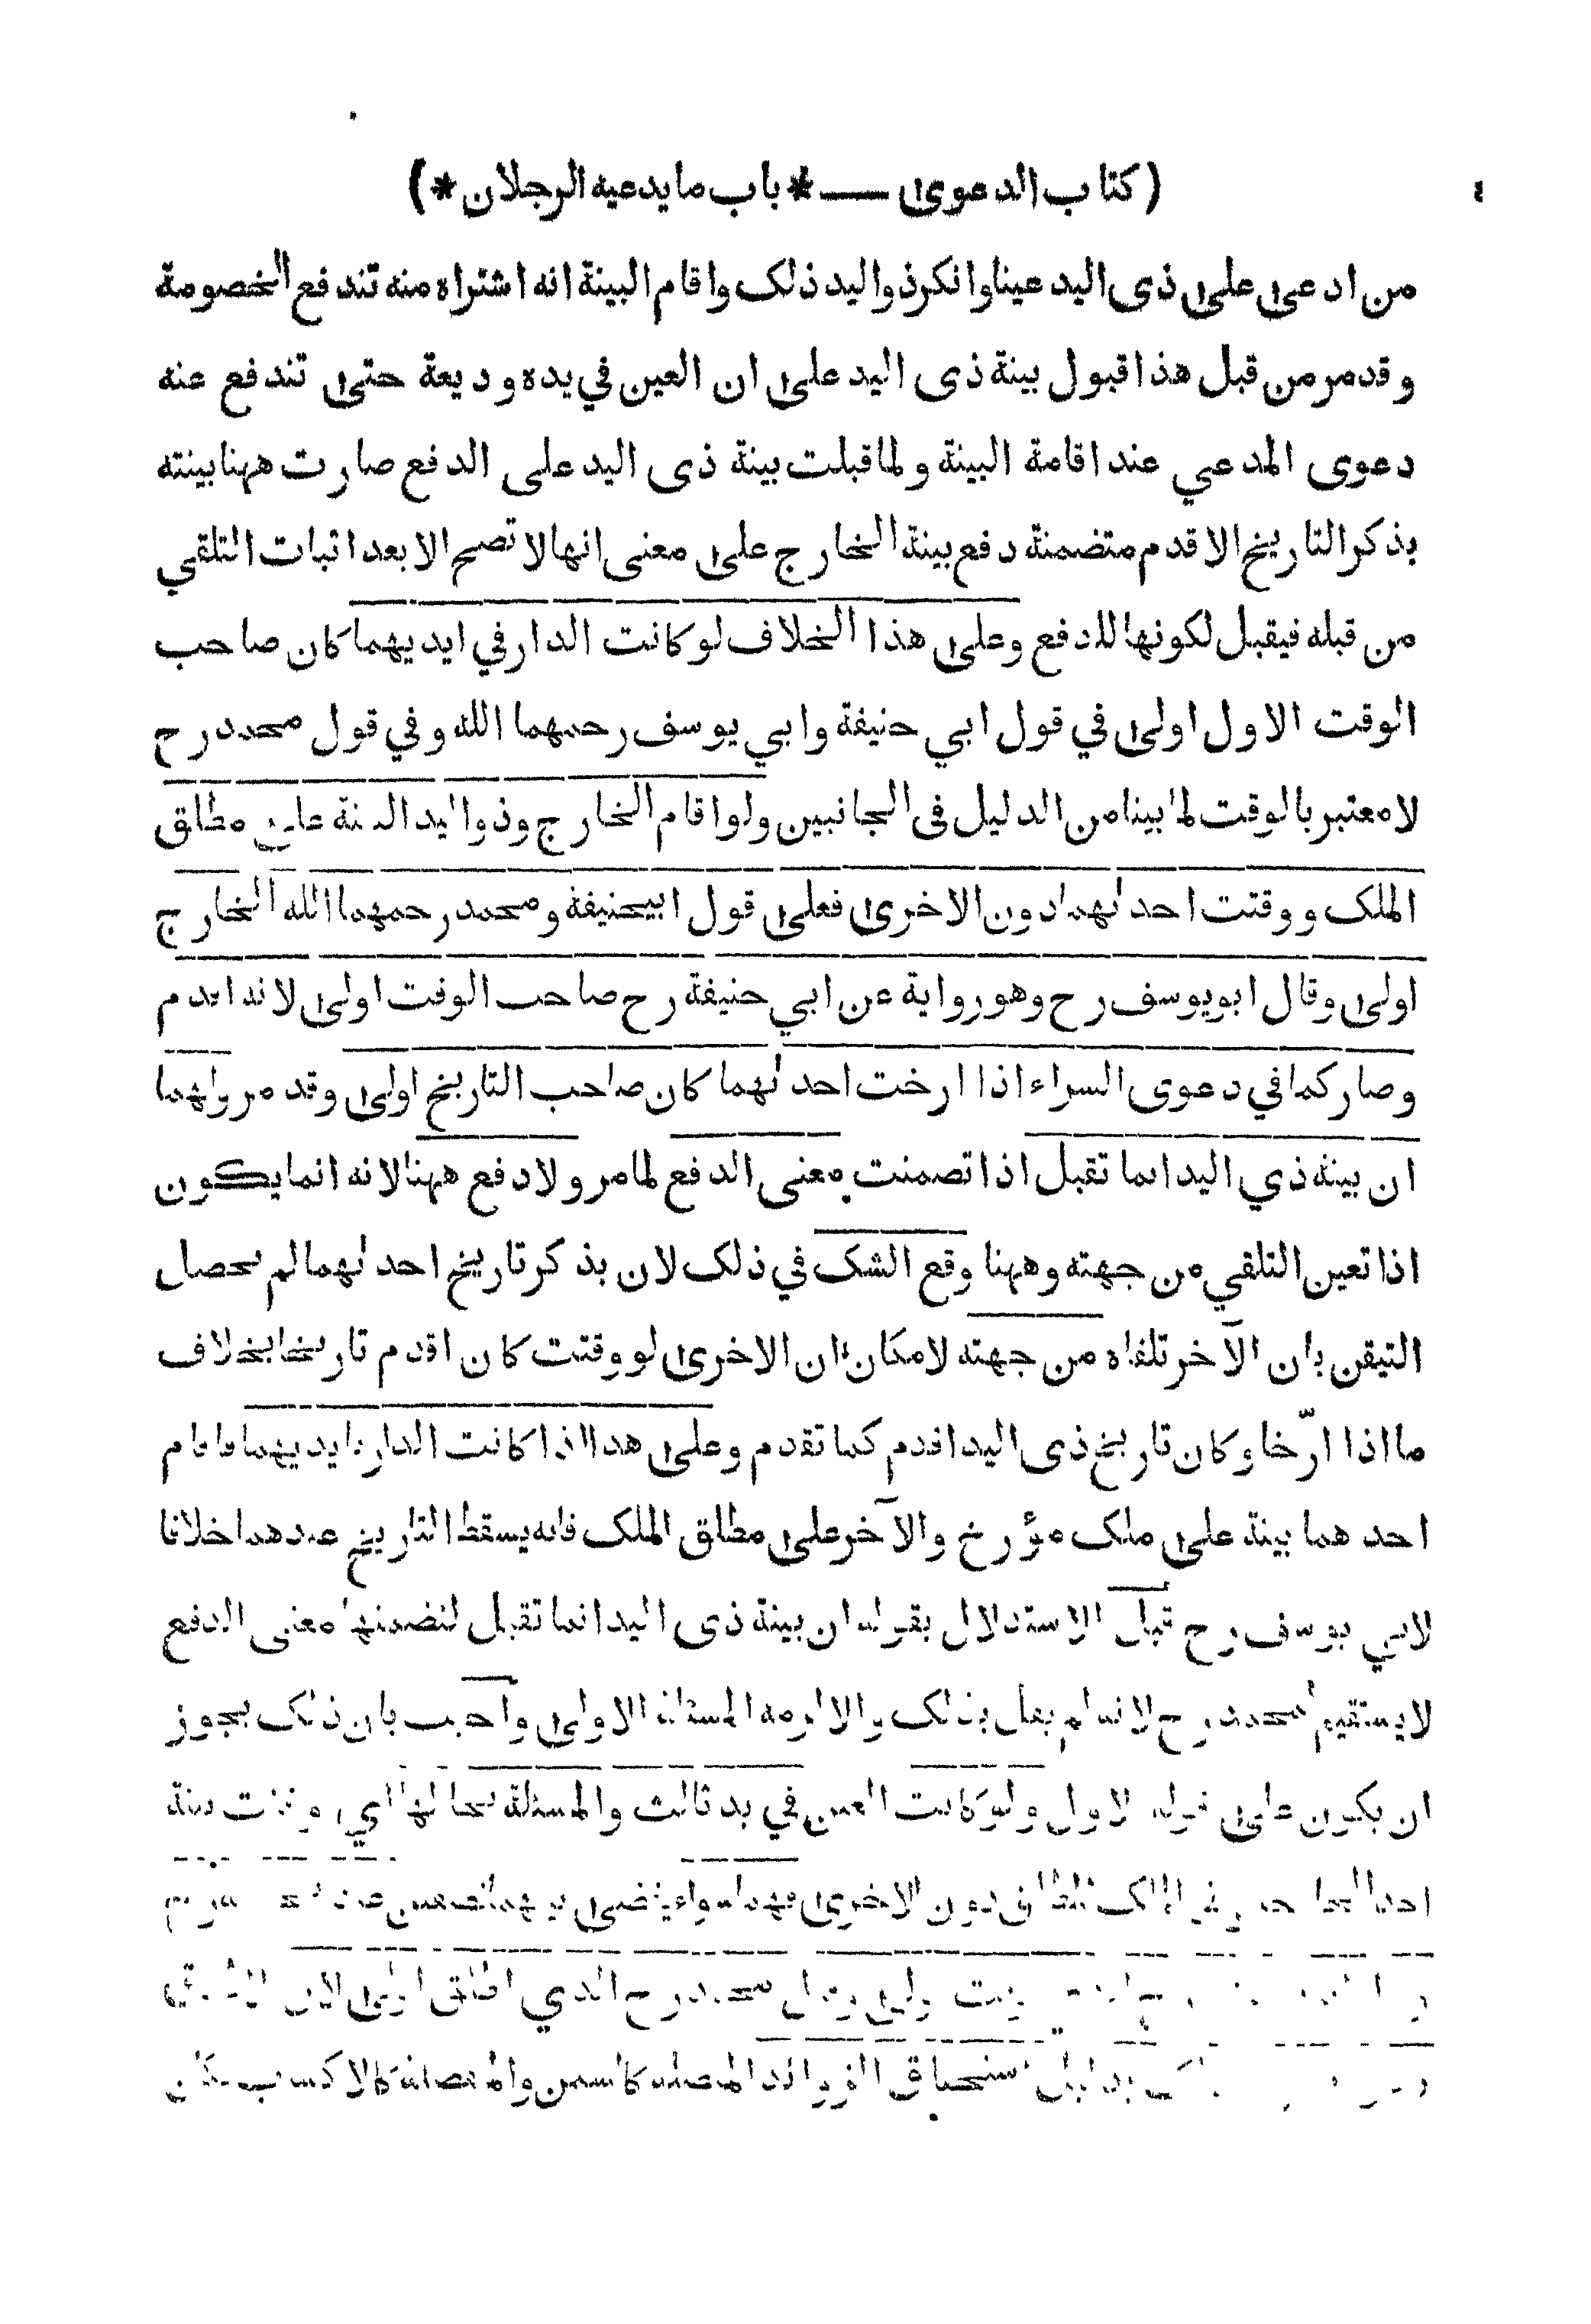 (كتاب الدعوى — * باب ما يدعيه الرجلان *)
من ادعى على ذى اليد عينا وانكر ذو اليد ذلك واقام البينة انه اشتراه منه تندفع الخصومة
وقد مر من قبل هذا قبول بينة ذى اليد على ان العين في يده وديعة حتى تندفع عنه
دعوى المدعي عند اقامة البينة ولما قبلت بينة ذى اليد على الدفع صارت ههنا بينته
بذكر التاريخ الاقدم متضمنة دفع بينة الخارج على معنى انها لا تصح الا بعد اثبات التلقي
من قبله فيقبل لكونها للدفع وعلى هذا الخلاف لو كانت الدار في ايديهما كان صاحب
الوقت الاول اولى في قول ابي حنيفة وابي يوسف رحمهما الله وفي قول محمد رح
لا معتبر بالوقت لما بينا من الدليل فى الجانبين ولو اقام الخارج وذو اليد البينة على مطلق
الملك ووقتت احدٰهما دون الاخرى فعلى قول ابيحنيفة ومحمد رحمهما الله الخارج
اولى وقال ابو يوسف رح وهو رواية عن ابي حنيفة رح صاحب الوقت اولى لانه اقدم
وصار كما في دعوى الشراء اذا ارخت احدٰهما كان صاحب التاريخ اولى وقد مر ولهما
ان بينة ذي اليد انما تقبل اذا تضمنت معنى الدفع لما مر ولا دفع ههنا لانه انما يكون
اذا تعين التلقي من جهته وههنا وقع الشك في ذلك لان بذكر تاريخ احدٰهما لم يحصل
التيقن بان الآخر تلقاه من جهته لامكان ان الاخرى لو وقتت كان اقدم تاريخا بخلاف
ما اذا ارّخا وكان تاريخ ذى اليد اقدم كما تقدم وعلى هذا اذا كانت الدار ايديهما فاقام
احدهما بينة على ملك مؤرخ والآخر على مطلق الملك فانه يسقط التاريخ عندهما خلافا
لابي يوسف رح قيل الاستدلال بقوله ان بينة ذى اليد انما تقبل لتضمنها معنى الدفع
لا يستقيم لمحمد رح لانه لم يقل بذلك المسئلة الاولى واجيب بان ذلك يجوز
ان يكون على قوله الاول ولو كانت العين في يد ثالث والمسئلة بحالها اي وقتت بينة
الملك المطلق دون الاخرى فهما سواء يقضى
محمد رح الذي اطلق اولى